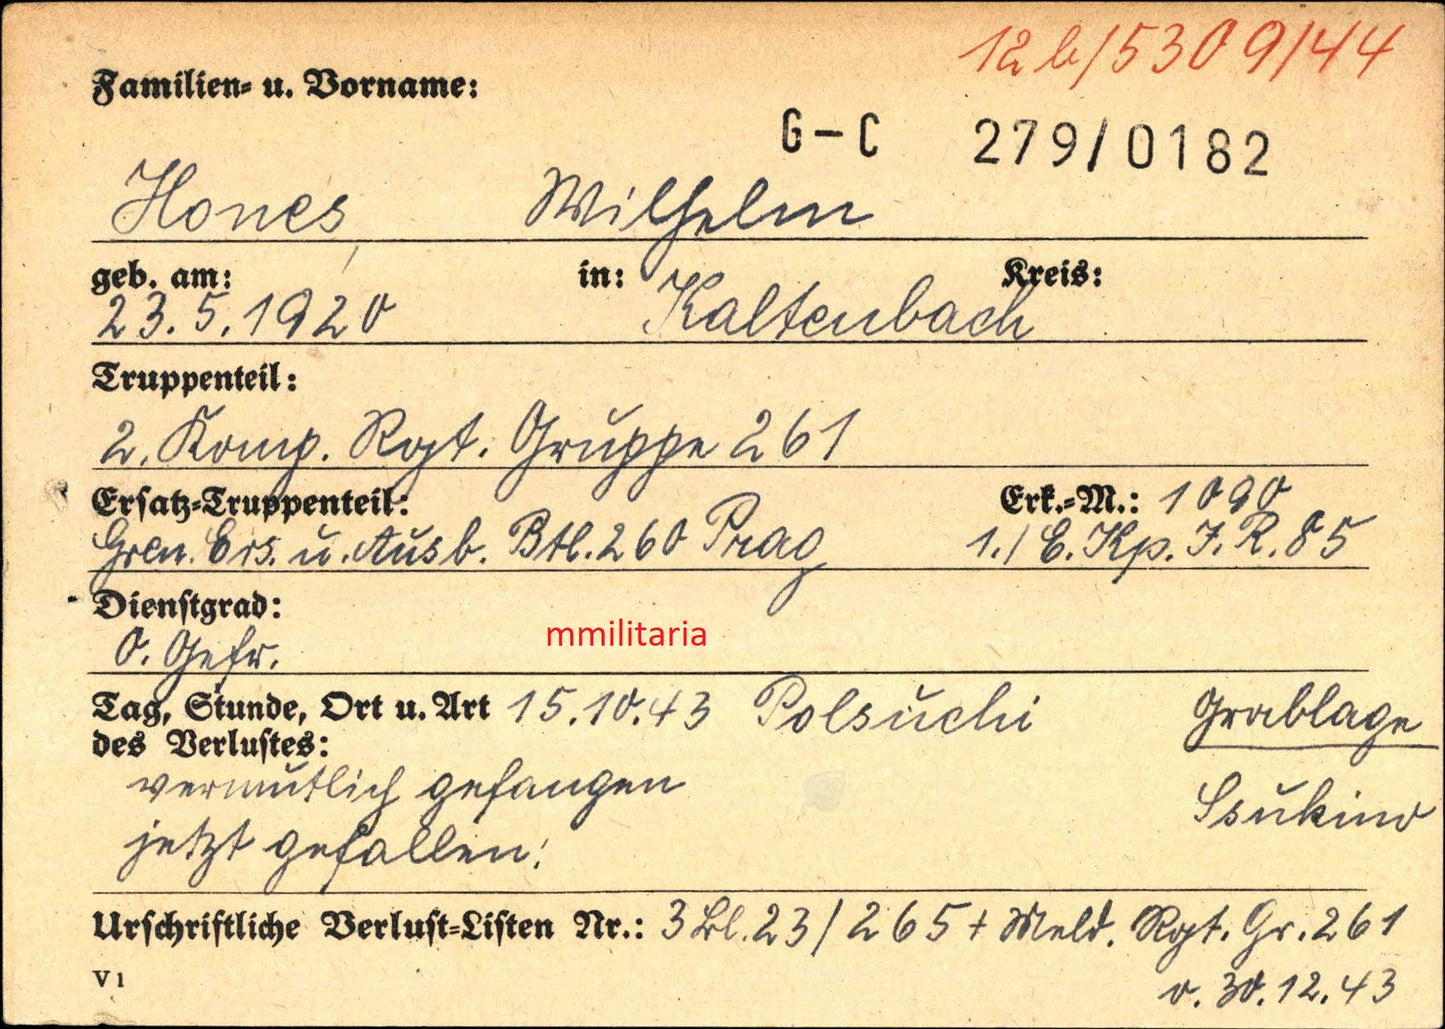 12b/5309/44
Familien- u. Vorname:
G-C 279/0182
Hones, Wilhelm
geb. am: in: Kreis:
23.5.1920 Kaltenbach
Truppenteil:
2. Komp. Rgt. Gruppe 261
Ersatz-Truppenteil: Erk.-M.: 1090
Gren. Ers. u. Ausb. Btl. 260 Prag 1./E. Kp. I. R. 85
Dienstgrad:
O. Gefr.
mmilitaria
Tag, Stunde, Ort u. Art 15.10.43 Polsuchi Grablage
des Verlustes:
vermutlich gefangen Ssukino
jetzt gefallen!
Urschriftliche Verlust-Listen Nr.: 3 Bl. 23/265 + Meld. Rgt. Gr. 261
V1 v. 30.12.43